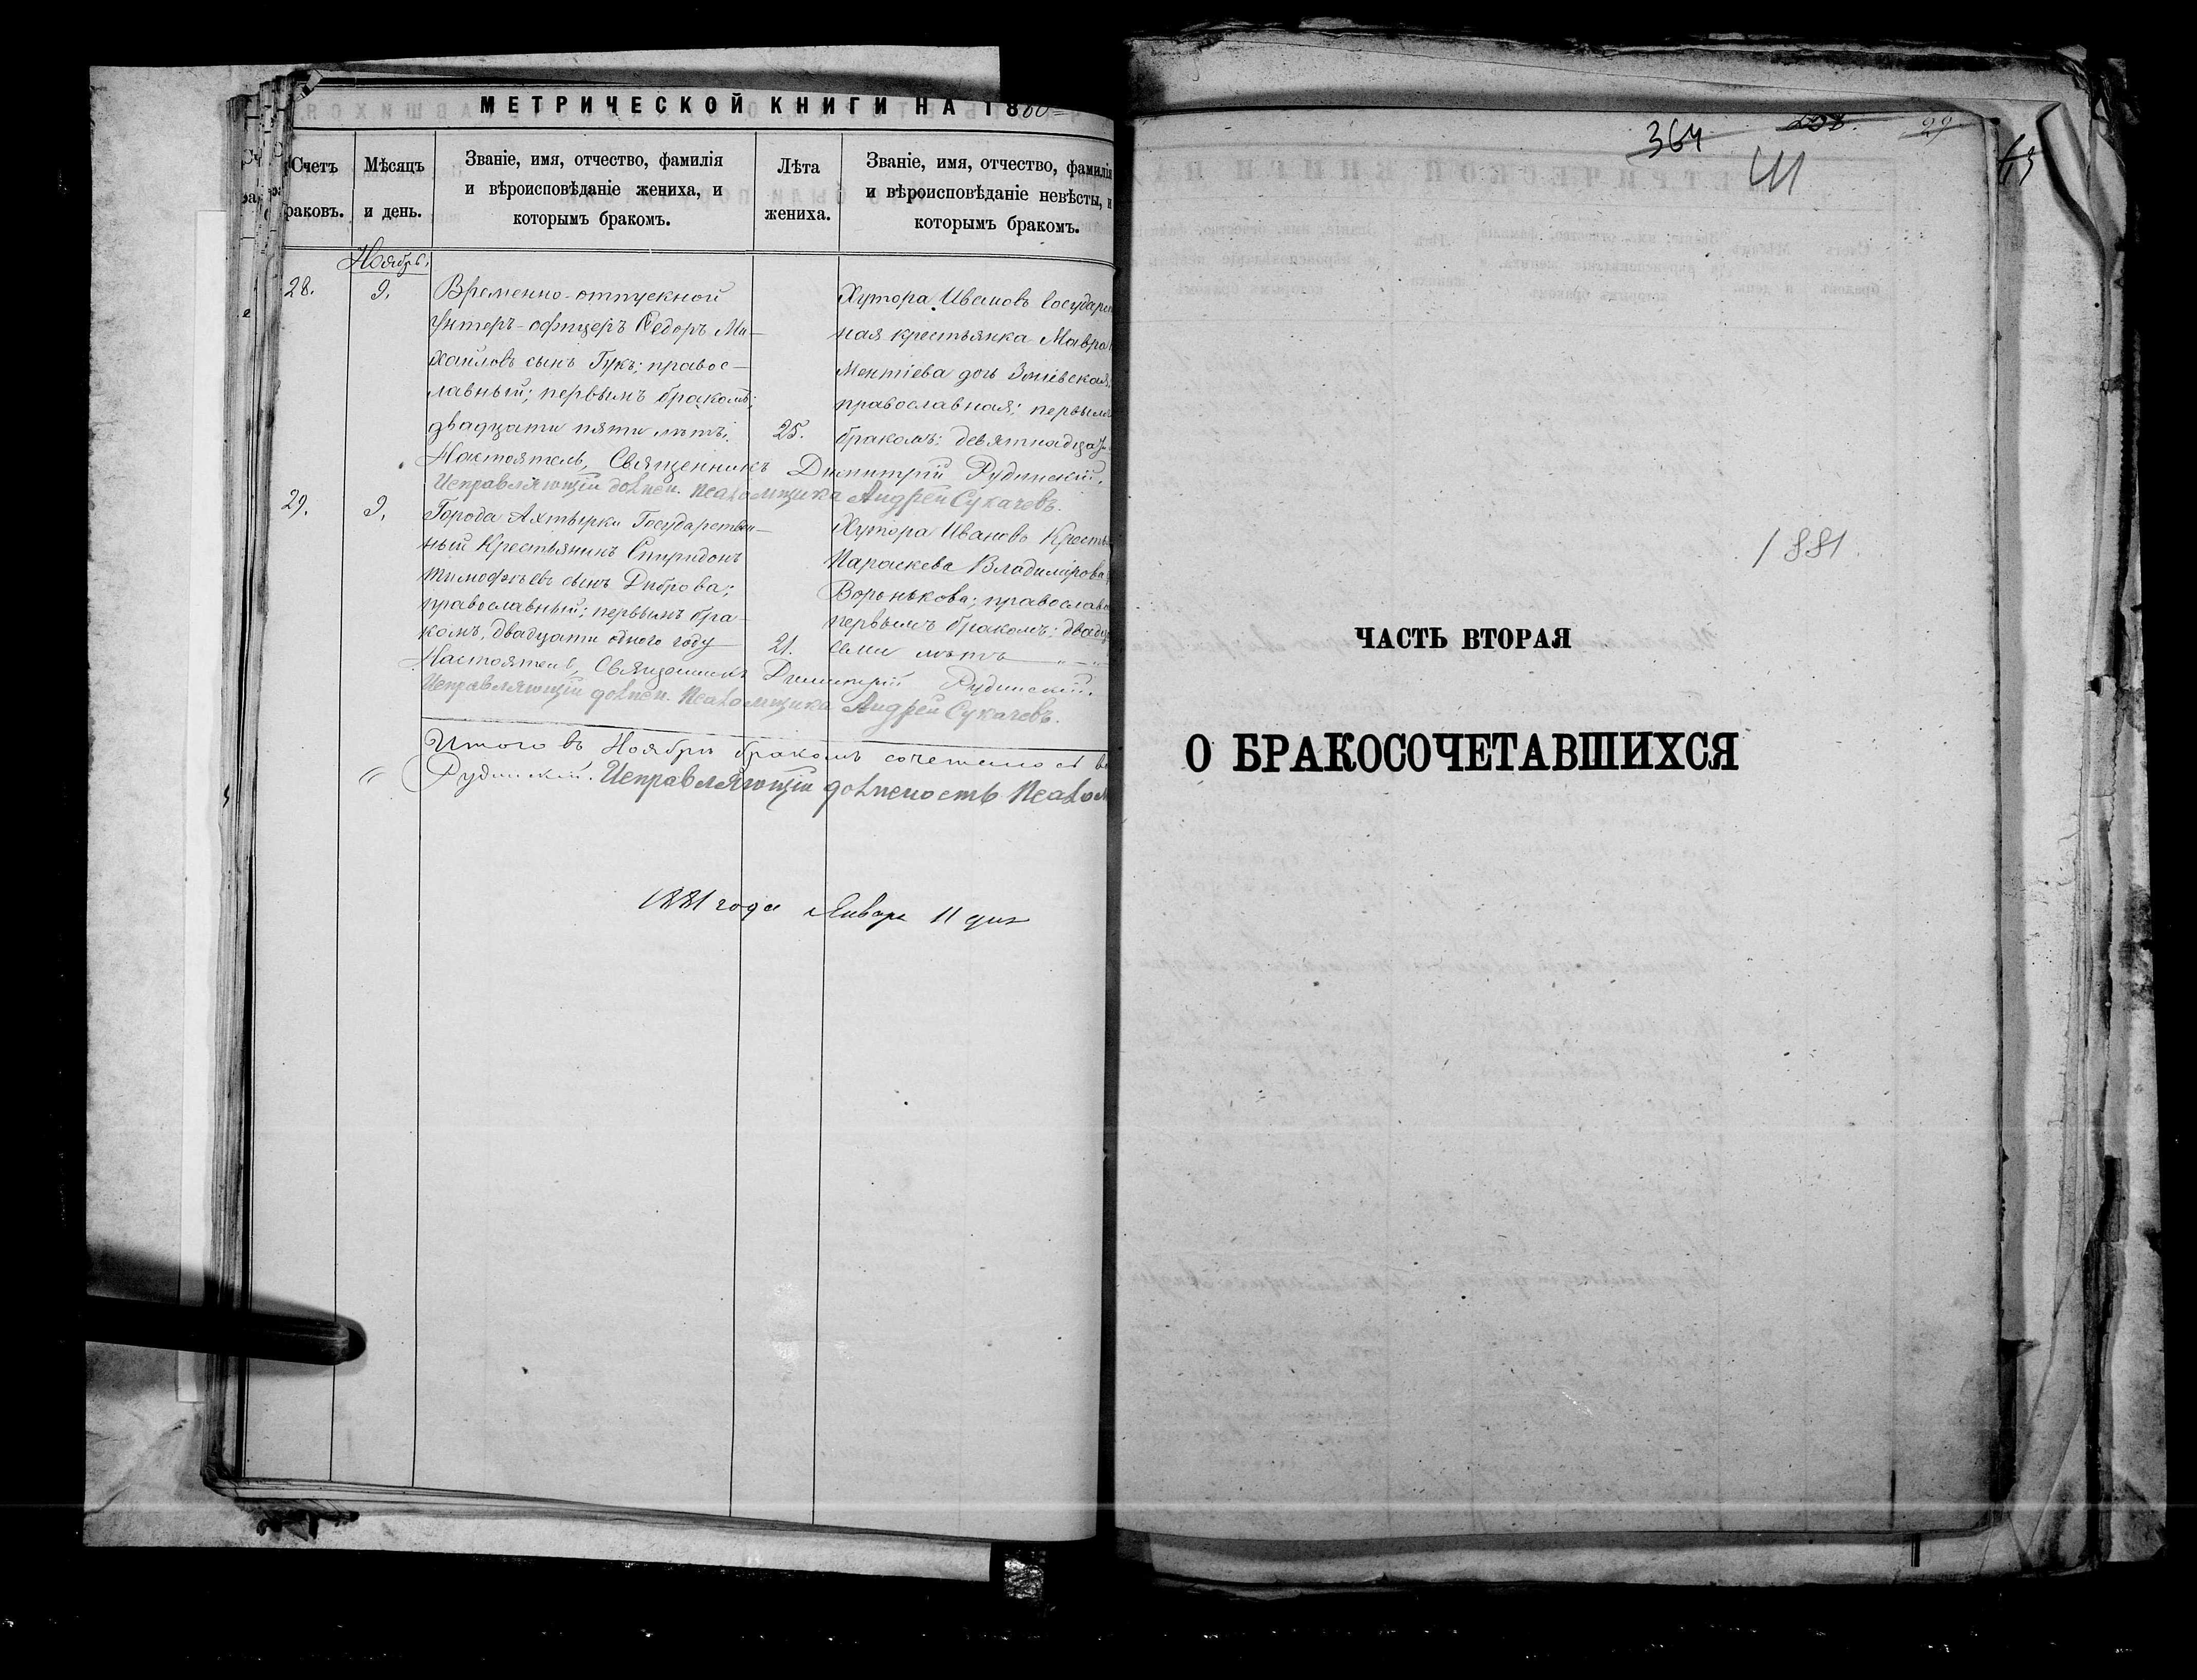 МЕТРИЧЕСКОЙ КНИГИ НА 1880
Счетъ
раковъ.
Мѣсяцъ
и день.
Званіе, имя, отчество, фамилія
и вѣроисповѣданіе жениха, и
которымъ бракомъ.
Лѣта
жениха.
Званіе, имя, отчество, фамилія
и вѣроисповѣданіе невѣсты, и
которымъ бракомъ.
Ноябрь.
28.
9.
Временно-отпускной
Унтеръ-офицеръ Ѳедоръ Ми-
хаиловъ сынъ Гукъ; правос-
лавный; первымъ бракомъ;
двадцати пяти лѣтъ;
25.
Хутора Иванов Государст
ная крестьянка Мавра
Ментіева дочь Зміевская
православная; первымъ
бракомъ; девятнадца
Настоятель, Священникъ Димитрій Рудинскій.
Исправляющій должн. псаломщика Андрей Сукачевъ.
29.
9.
Города Ахтырки Государствен-
ный Крестьянинъ Спиридонъ
Тимофѣевъ сынъ Диброва;
православный; первымъ бра-
комъ, двадцати одного году
21.
Хутора Ивановъ Кресть
Параскева Владимірова
Воронькова; православ
первымъ бракомъ; двадц
семи лѣтъ
Настоятель, Священникъ Димитрій Рудинскій.
Исправляющій должн. псаломщика Андрей Сукачевъ.
Итого въ Ноябрѣ бракомъ сочеталось
Рудинскій. Исправляющій должность псалом
1881 года Января 11 дня
364
208.
29
Ш
1881.
ЧАСТЬ ВТОРАЯ
О БРАКОСОЧЕТАВШИХСЯ